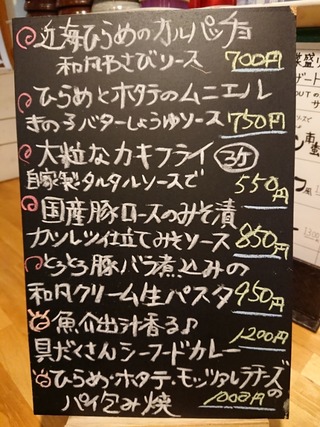 近海ひらめのカルパッチョ
和風わさびソース 700円
ひらめとホタテのムニエル
きのこバターしょうゆソース 750円
大粒なカキフライ 3ケ
自家製タルタルソースで 550円
国産豚ロースのみそ漬
カツレツ仕立てみそソース 850円
とろとろ豚バラ煮込みの
和風クリーム生パスタ 950円
魚介出汁香る♪
具だくさんシーフドカレー 1200円
ひらめ・ホタテ・モッツァレラチーズの
パイ包み焼 1000円